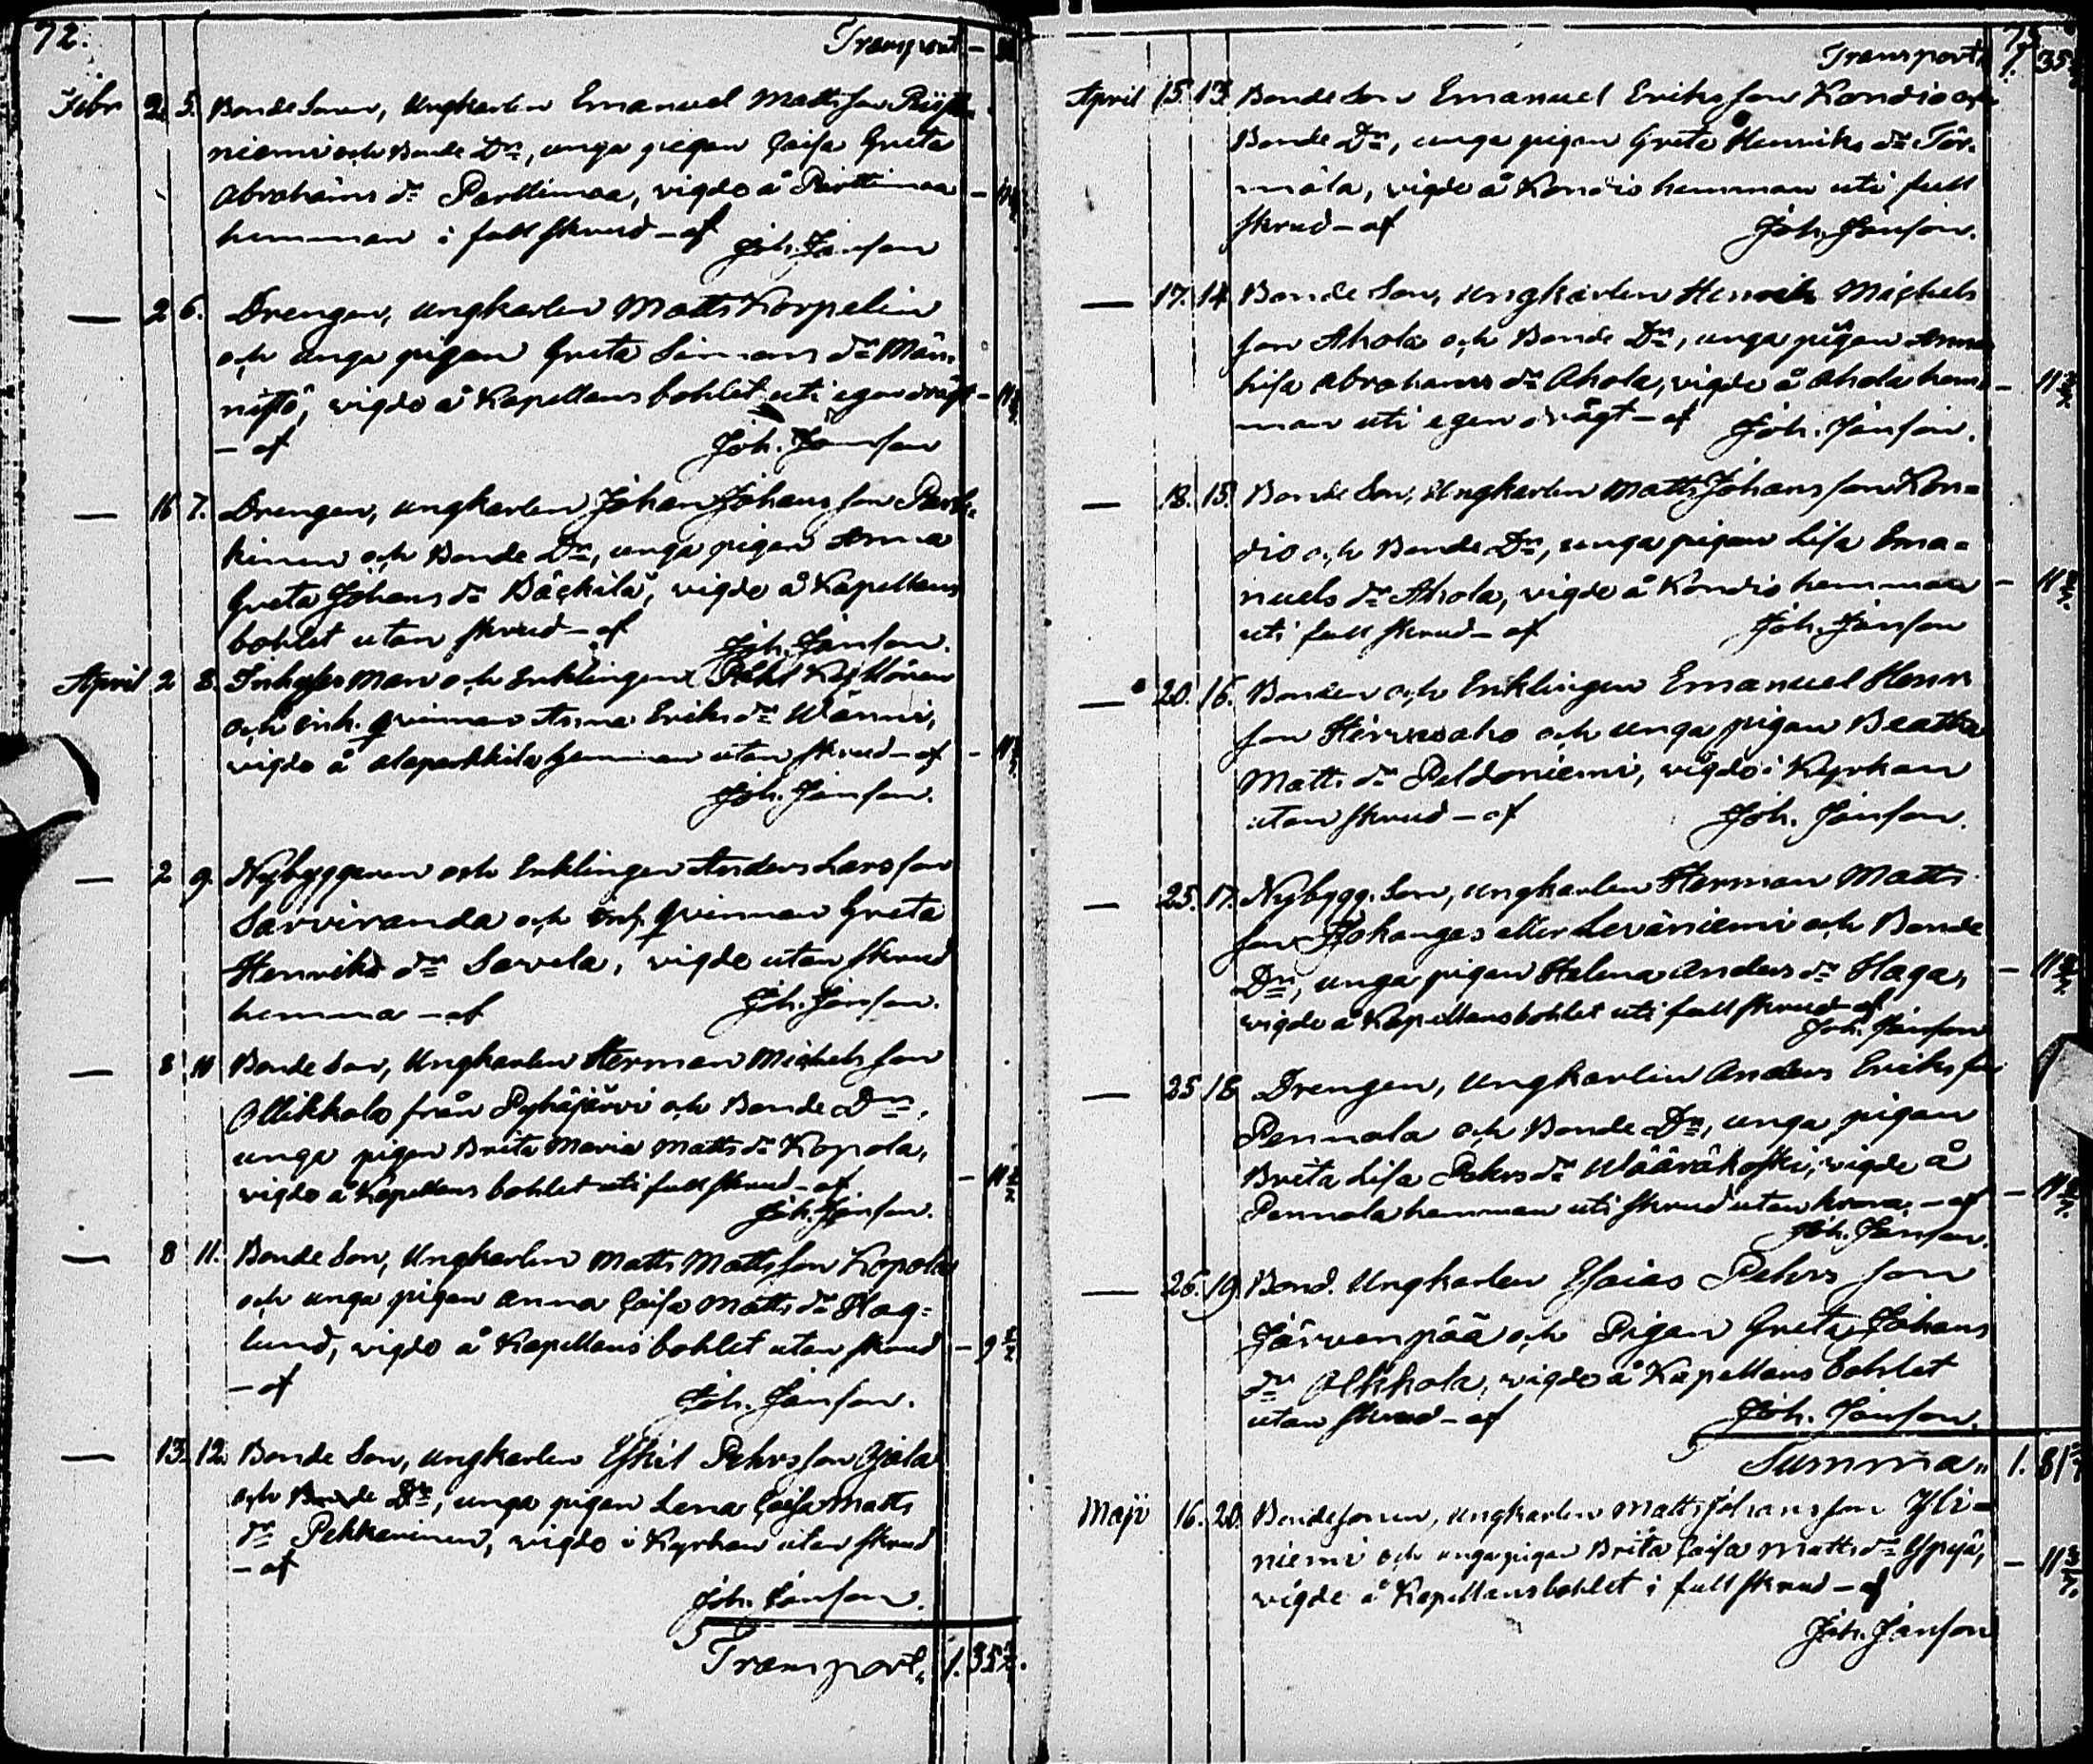 72.
Transport —
Febr 2. 5. Bonde Sonen, Ungkarlen Emanuel Mattsson
niemi och Bonde Dn, unga pigan Caisa Greta
Abrahams dr Parttimaa, vigde å Parttimaa —
hemman i full skrud — af Joh. Janson
— 2 6. Drengen, Ungkarlen Matts Korpelin
och unga pigan Greta Simons dr Män-
nistö, vigde å Kapellans bohlet uti egen drägt —
— af Joh. Janson
— 16 7. Drengen, Ungkarlen Johan Johansson
kinen och Bonde Dn, unga pigan Anna
Greta Johans dr Bäckilä, vigde å Kapellans
bohlet utan skrud — af Joh. Janson.
April 2 8. Inhyses Man och Enklingen
och Inh. qvinnan Anna Eriks dr Wänni,
vigde å hemman utan skrud — af —
Joh. Janson.
— 2 9. Nybyggaren och Enklingen Anders Larsson
Sarviranda och Inh. qvinnan Greta
Henriks dr Savela, vigde utan skrud
hemma — af Joh. Janson.
— 8 10 Bonde Son, Ungkarlen Herman Michelsson
Ollikkala från Pyhäjärvi och Bonde Dn,
unga pigan Brita Maria Matts dr Kopola,
vigde å Kapellans bohlet uti full skrud — af —
Joh. Janson.
— 8 11. Bonde Son, Ungkarlen Matts Mattsson Kopola
och unga pigan Anna Caisa Matts dr Hag=
lund, vigde å Kapellans bohlet utan skrud — 9
— af
Joh. Janson.
— 13. 12. Bonde Son, Ungkarlen Eskil Pehrsson
och Bonde Dn, unga pigan Lena Caisa Matts
dr Pekkarinen, vigde i Kyrkan utan skrud
— af
Joh. Janson.
Transport, 1. 35
Transport
April 15. 13. Bonde Son Emanuel Eriksson Kondio och
Bonde Dn, unga pigan Greta Henriks dr Tör-
mälä, vigde å Kondio hemman uti full
skrud — af Joh. Janson.
— 17. 14. Bonde Son, Ungkarlen Henrik Michels
son Ahola och Bonde Dn, unga pigan Anna
Lisa Abrahams dr Ahola, vigde å Ahola hem- —
man uti egen drägt — af Joh. Janson.
— 18. 15. Bonde Son, Ungkarlen Matts Johansson Kon=
dio och Bonde Dn, unga pigan Lisa Ema=
nuels dr Ahola, vigde å Kondio hemman —
uti full skrud — af Joh. Janson
— 20. 16. Bonden och Enklingen Emanuel Henr.
son Hirvasaho och unga pigan Beatha
Matts dr Peldoniemi, vigde i Kyrkan
utan skrud — af Joh. Janson.
— 25. 17. Nybygg. Son, Ungkarlen Herman Matts
son Johanges eller Leväniemi och Bonde
Dn, unga pigan Helena Anders dr Haga, —
vigde å Kapellans bohlet uti full skrud — af
Joh. Janson
— 25 18 Drengen, Ungkarlen Anders Eriksson
Pennala och Bonde Dn, unga pigan
Brita Lisa Pehrs dr Wääräkoski, vigde å
Pennala hemman uti skrud utan krona, — af —
Joh. Janson.
— 26. 19. Bond. Ungkarlen Esaias Pehrs son
Järvenpää och Pigan Greta Johans
dr Olkkola, vigde å Kapellans bohlet
utan skrud — af Joh. Janson.
Summa „ 1. 81
Maji 16. 20. Bondesonen, Ungkarlen Matts Johansson Yli=
niemi och unga pigan Brita Caisa Matts dr Yppyä, —
vigde å Kapellans bohlet i full skrud — af
Joh. Janson